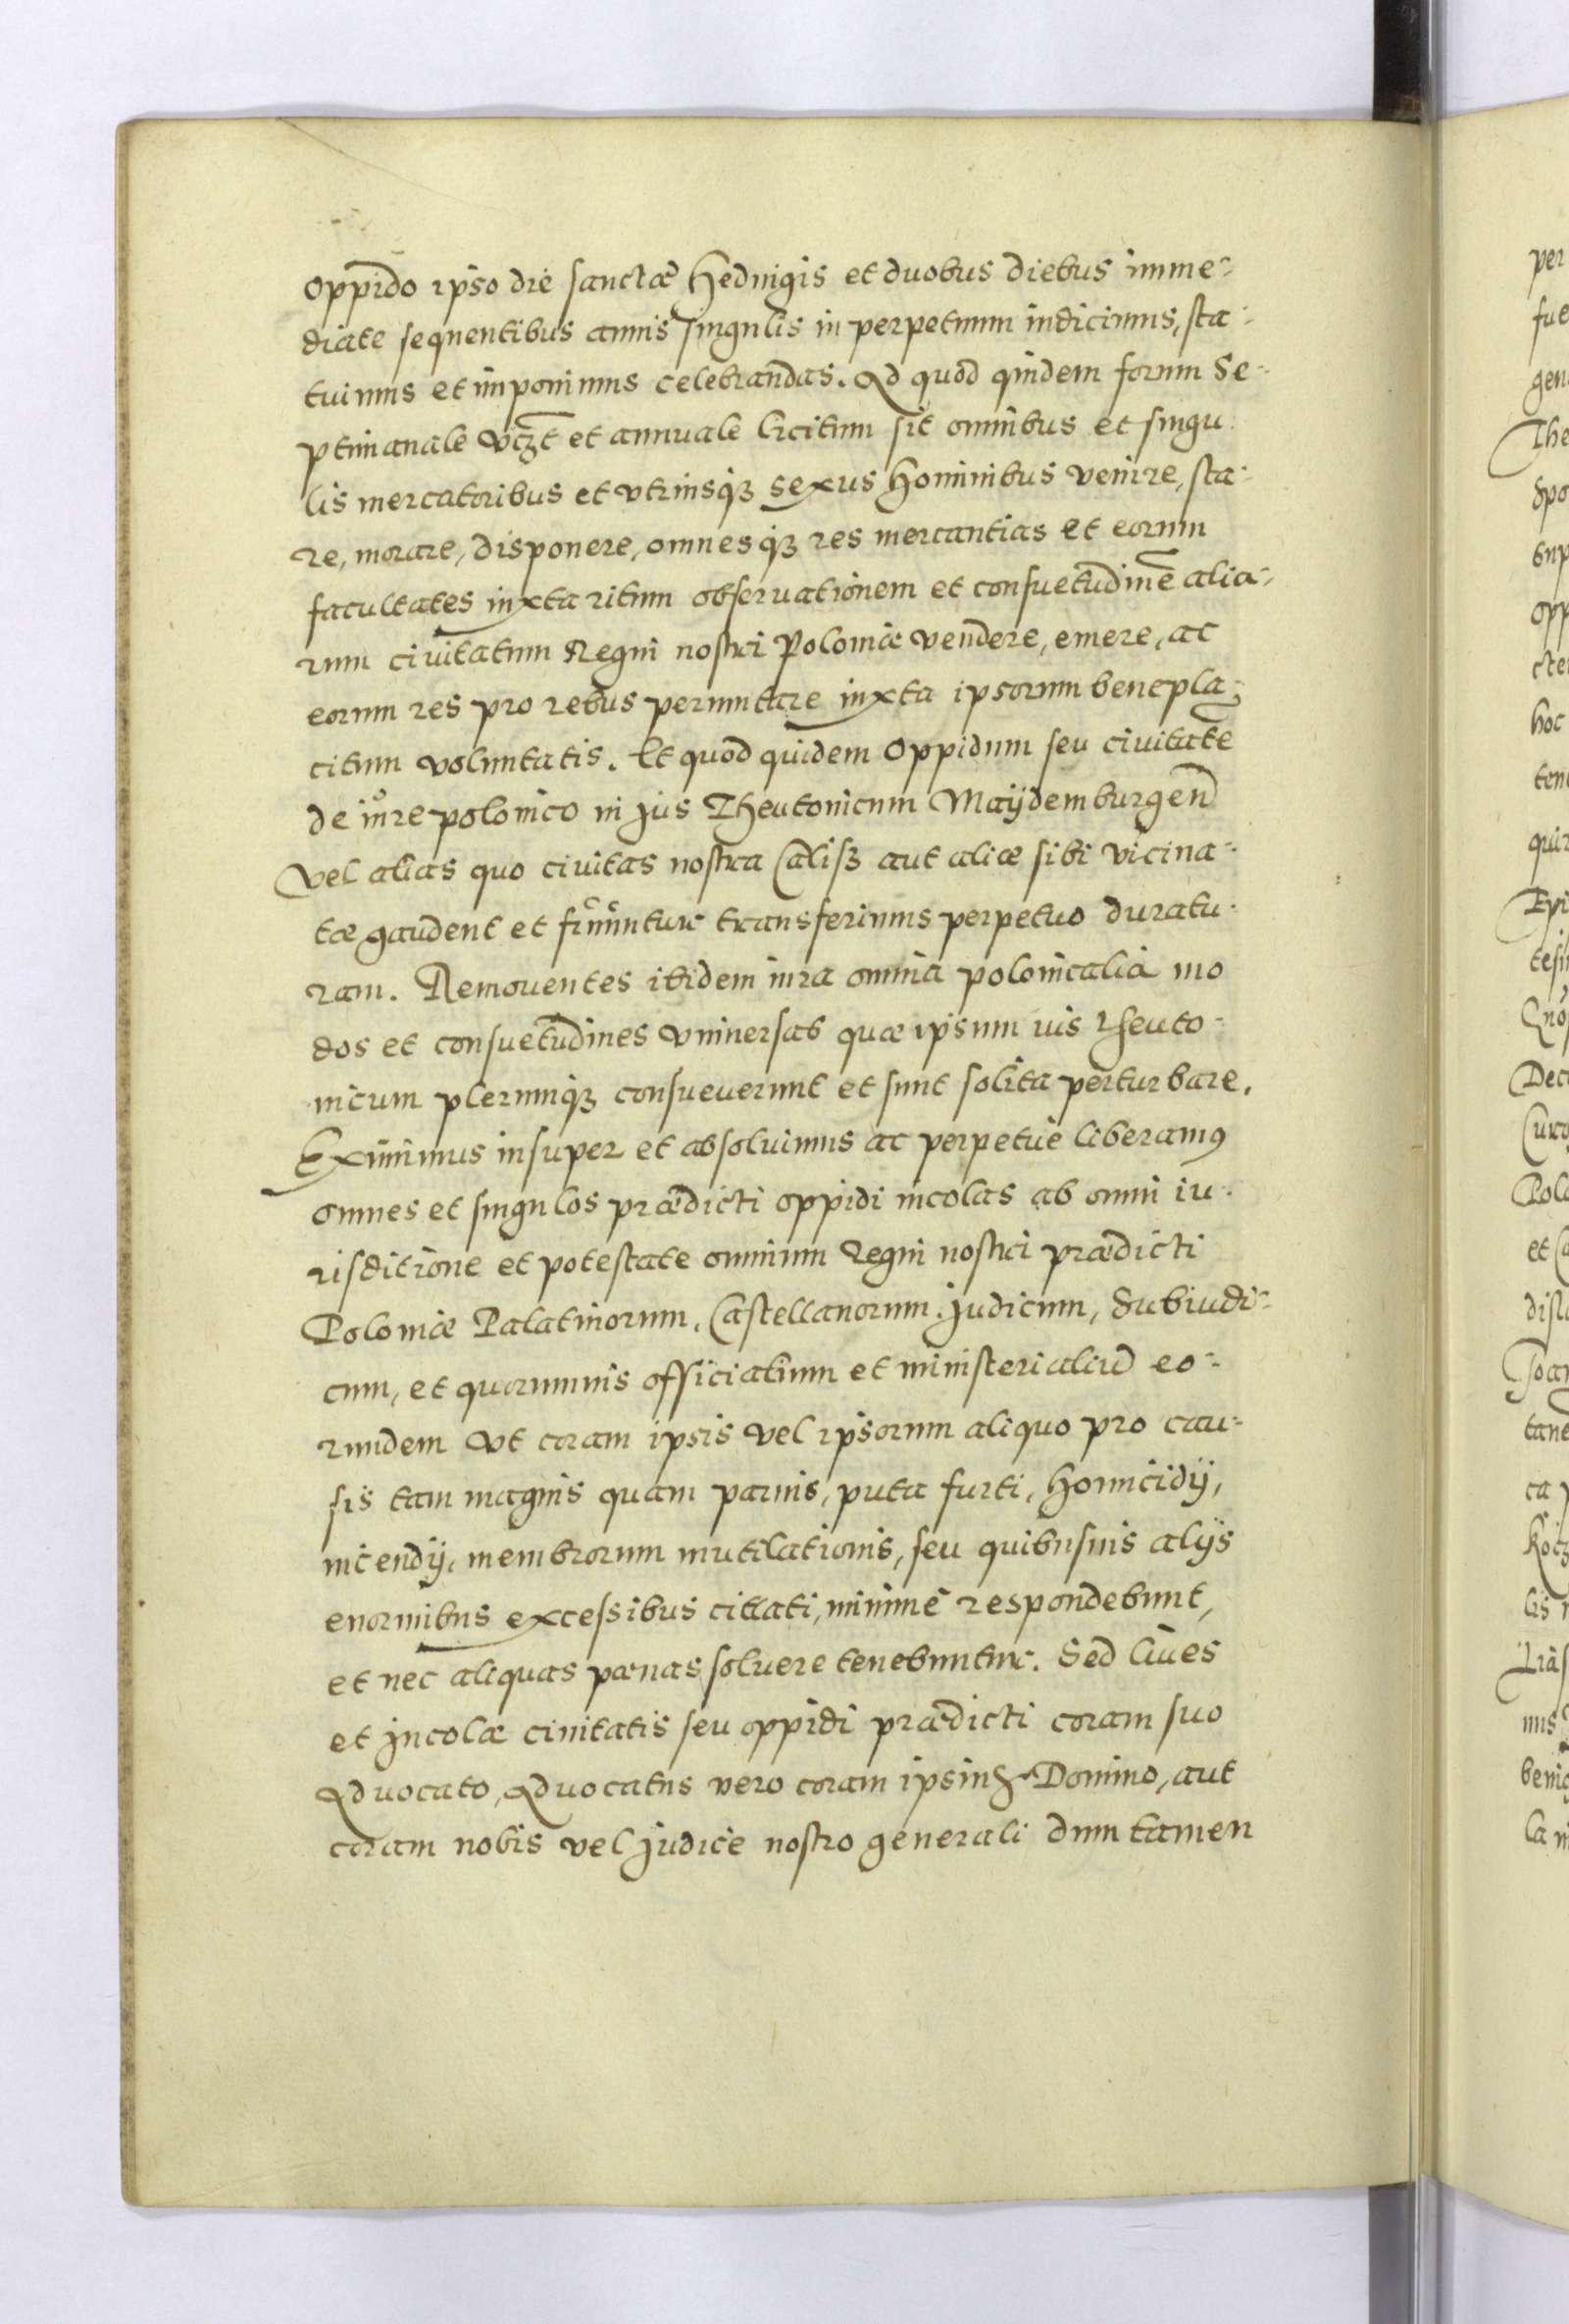 oppido ipso die sanctæ Hedvigis et duobus diebus imme-
diate sequentibus annis singulis in perpetuum indicimus, sta-
tuimus et imponimus celebrandas. Ad quod quidem forum Se-
ptimanale vizt et annuale licitum sit omnibus et singu
lis mercatoribus et vtriusqȝ sexus Hominibus venire, sta-
re, morare, disponere, omnesqȝ res mercantias et eorum
facultates iuxta ritum obseruationem et consuetudinẽ alia-
rum ciuitatum Regni nostri Poloniæ vendere, emere, ac
eorum res pro rebus permutare iuxta ipsorum benepla-
citum voluntatis. Et quod quidem Oppidum seu ciuitatẽ
de iure polonico in jus Theutonicum Maÿdemburgen̄
vel alias quo ciuitas nostra Calisȝ aut aliæ sibi vicina-
tæ gaudent et fruuntur transferimus perpetuo duratu-
ram. Remouentes ibidem iura omnia polonicalia mo
dos et consuetudines vniuersas quæ ipsum ius Theuto-
nicum plerumqȝ consueuerunt et sunt solita perturbare.
Eximimus insuper et absoluimus ac perpetue liberamꝰ
omnes et singulos prædicti oppidi incolas ab omni iu-
risditione et potestate omnium Regni nostri prædicti
Poloniæ Palatinorum, Castellanorum. judicum, Subiudi-
cum, et quorumuis officialium et ministerialiū eo-
rundem vt coram ipsis vel ipsorum aliquo pro cau-
sis tam magnis quam paruis, puta furti, Homicidÿ,
incendÿ, membrorum mutilationis, seu quibusuis alÿs
enormibus excessibus citlati, minime respondebunt,
et nec aliquas pœnas soluere tenebuntur. Sed Ciues
et jncolæ ciuitatis seu oppidi prædicti coram suo
Aduocato, Aduocatus vero coram ipsius Domino, aut
coram nobis vel judice nostro generali dum tamen